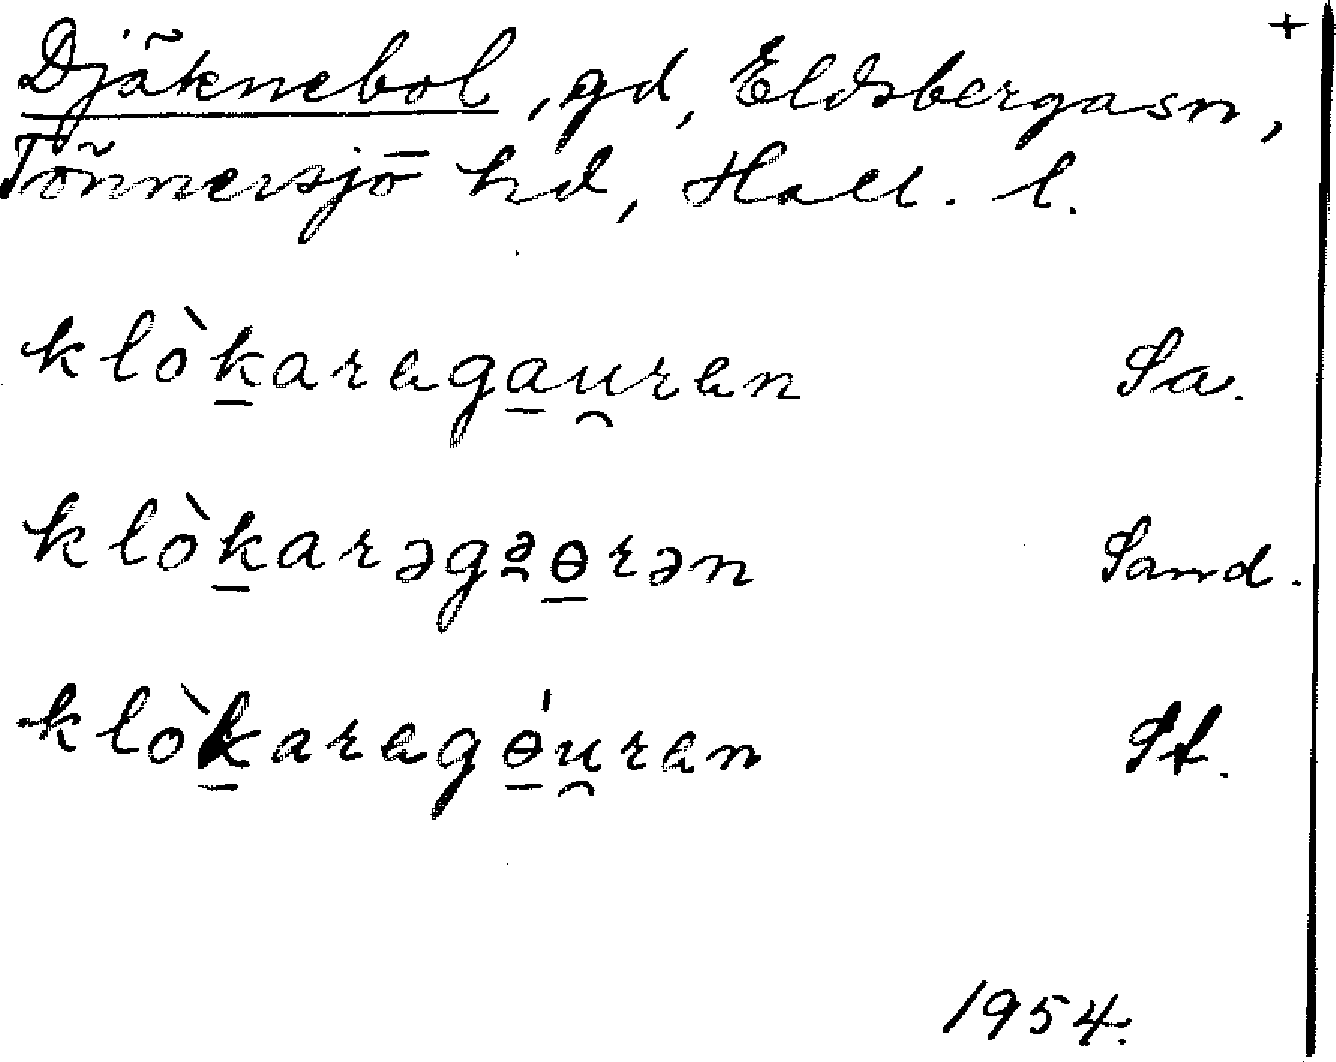 +
Djäknebol, gd, Eldsbergasn,
Tönnersjö hd, Hall. l.
klòk̲aragau̯ran Sa.
klòk̲arəgə̲ɵ̲rən Sand.
klòk̲aragɵ̲́u̯ran St.
1954.